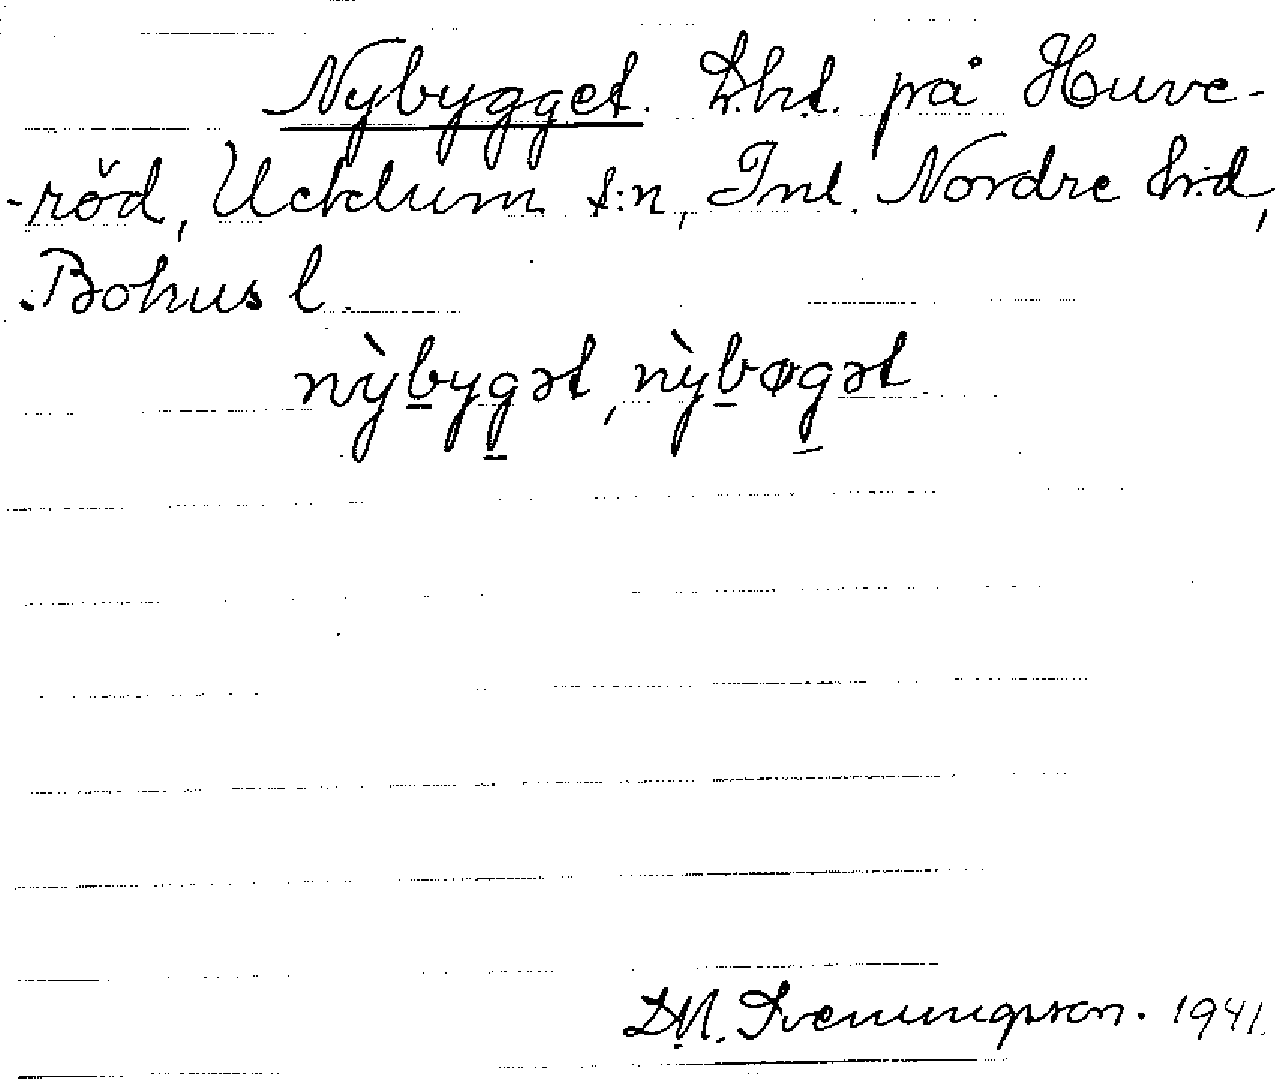 Nybygget. D.ht. på Huve-
-röd, Ucklum s:n, Inl. Nordre h:d,
Bohus l.
nỳbygət, nỳbøgət
D.N. Sveningsson. 1941.